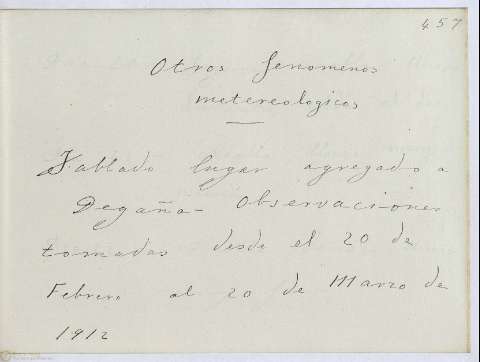 457
Otros fenomenos
metereologicos
Tablado lugar agregado a
Degaña- Observaciones
tomadas desde el 20 de
Febrero al 20 de Marzo de
1912